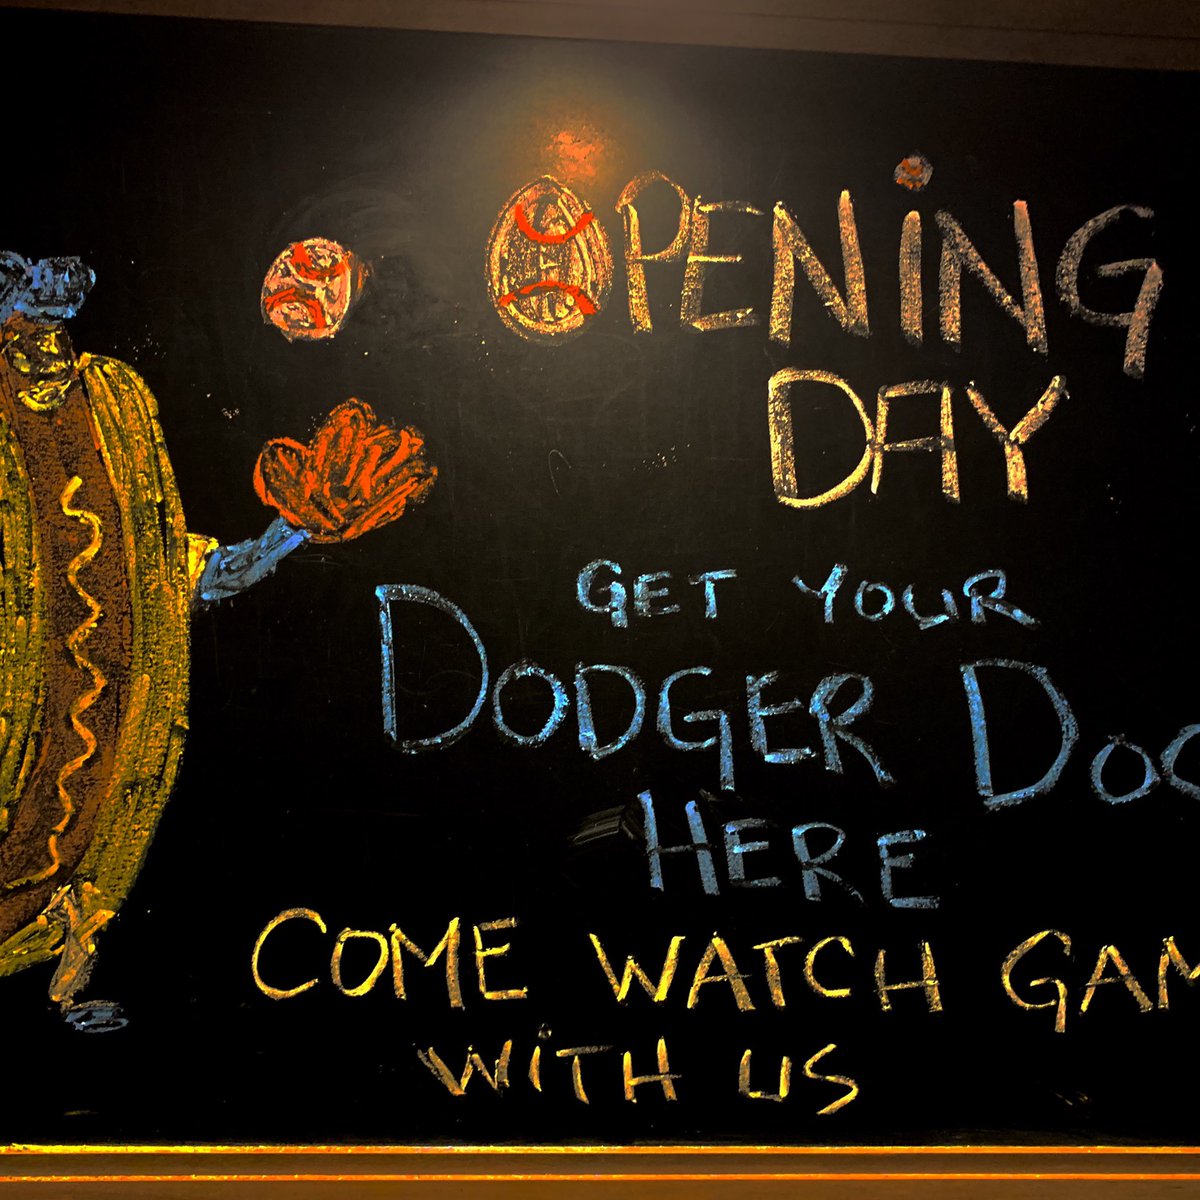 OPENiNG
DAY
GET YOUR
DODGER DOG
HERE
COME WATCH GAM
WiTH US